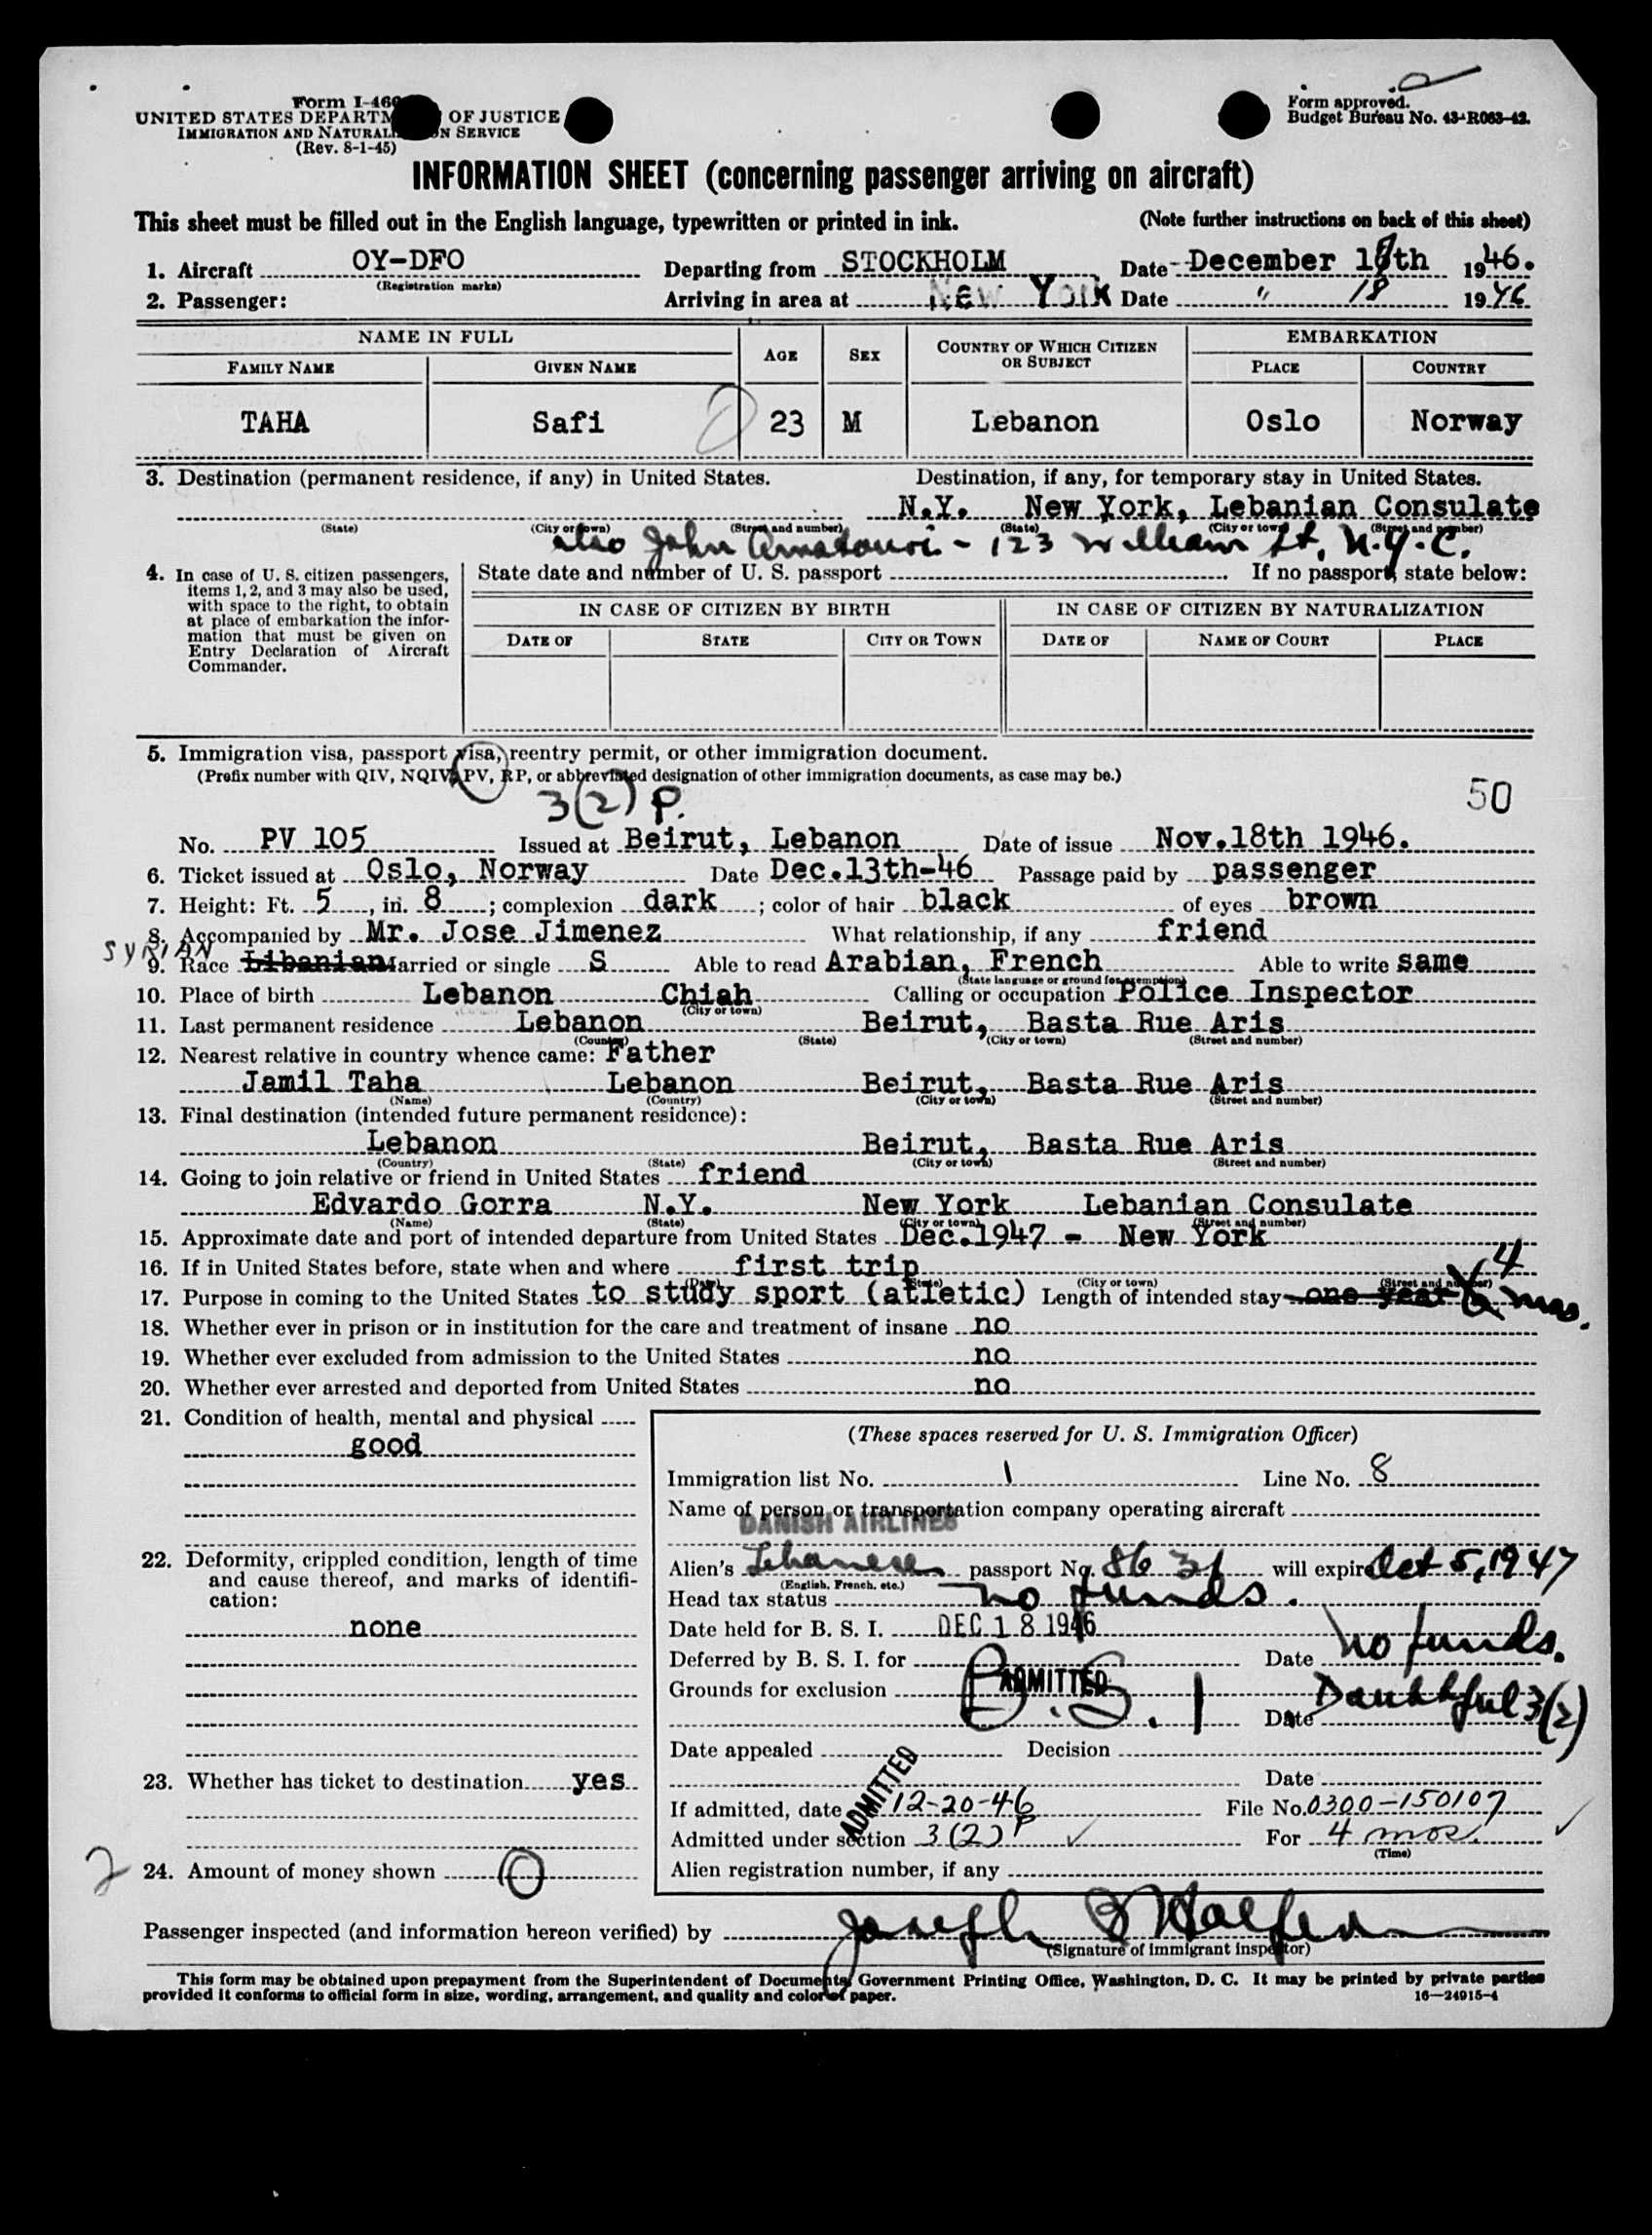 Form I-466
UNITED STATES DEPARTM OF JUSTICE
IMMIGRATION AND NATURAL N SERVICE
(Rev. 8-1-45)
Form approved.
Budget Bureau No. 43-R063-42.
INFORMATION SHEET (concerning passenger arriving on aircraft)
This sheet must be filled out in the English language, typewritten or printed in ink. (Note further instructions on back of this sheet)
1. Aircraft OY-DFO Departing from STOCKHOLM Date December 18th 1946.
(Registration marks)
2. Passenger: Arriving in area at New York Date " 18 1946
NAME IN FULL AGE SEX COUNTRY OF WHICH CITIZEN OR SUBJECT EMBARKATION
FAMILY NAME GIVEN NAME PLACE COUNTRY
TAHA Safi 23 M Lebanon Oslo Norway
3. Destination (permanent residence, if any) in United States. Destination, if any, for temporary stay in United States.
N.Y. New York, Lebanian Consulate
(State) (City or town) (Street and number) (State) (City or town) (Street and number)
also John - 123 William St, N.Y.C.
4. In case of U. S. citizen passengers, items 1, 2, and 3 may also be used, with space to the right, to obtain at place of embarkation the information that must be given on Entry Declaration of Aircraft Commander.
State date and number of U. S. passport If no passport, state below:
IN CASE OF CITIZEN BY BIRTH IN CASE OF CITIZEN BY NATURALIZATION
DATE OF STATE CITY OR TOWN DATE OF NAME OF COURT PLACE
5. Immigration visa, passport visa, reentry permit, or other immigration document.
(Prefix number with QIV, NQIV, PV, RP, or abbreviated designation of other immigration documents, as case may be.)
3(2) P. 50
No. PV 105 Issued at Beirut, Lebanon Date of issue Nov.18th 1946.
6. Ticket issued at Oslo, Norway Date Dec.13th-46 Passage paid by passenger
7. Height: Ft. 5, in. 8; complexion dark; color of hair black of eyes brown
8. Accompanied by Mr. Jose Jimenez What relationship, if any friend
SYRIAN
9. Race Libanian Married or single S Able to read Arabian, French Able to write same
(State language or ground for exemption)
10. Place of birth Lebanon Chiah Calling or occupation Police Inspector
(City or town)
11. Last permanent residence Lebanon Beirut, Basta Rue Aris
(Country) (State) (City or town) (Street and number)
12. Nearest relative in country whence came: Father
Jamil Taha Lebanon Beirut, Basta Rue Aris
(Name) (Country) (City or town) (Street and number)
13. Final destination (intended future permanent residence):
Lebanon Beirut, Basta Rue Aris
(Country) (State) (City or town) (Street and number)
14. Going to join relative or friend in United States friend
Edvardo Gorra N.Y. New York Lebanian Consulate
(Name) (State) (City or town) (Street and number)
15. Approximate date and port of intended departure from United States Dec.1947 - New York
16. If in United States before, state when and where first trip
(Date) (State) (City or town) (Street and number)
17. Purpose in coming to the United States to study sport (atletic) Length of intended stay one year 4 mos.
18. Whether ever in prison or in institution for the care and treatment of insane no
19. Whether ever excluded from admission to the United States no
20. Whether ever arrested and deported from United States no
21. Condition of health, mental and physical
good
22. Deformity, crippled condition, length of time and cause thereof, and marks of identification:
none
23. Whether has ticket to destination yes
2
24. Amount of money shown 0
(These spaces reserved for U. S. Immigration Officer)
Immigration list No. 1 Line No. 8
Name of person or transportation company operating aircraft
DANISH AIRLINES
Alien's Lebanese passport No. 8631 will expire Oct 5, 1947
(English, French, etc.)
Head tax status no funds.
Date held for B. S. I. DEC 18 1946
Deferred by B. S. I. for Date no funds.
Grounds for exclusion ADMITTED
B.S.I Date Doubtful 3(2)
Date appealed Decision
ADMITTED
Date
If admitted, date 12-20-46 File No. 0300-150107
Admitted under section 3(2)P For 4 mos.
(Time)
Alien registration number, if any
Passenger inspected (and information hereon verified) by Joseph
(Signature of immigrant inspector)
This form may be obtained upon prepayment from the Superintendent of Documents, Government Printing Office, Washington, D. C. It may be printed by private parties
provided it conforms to official form in size, wording, arrangement, and quality and color of paper. 16—24915-4